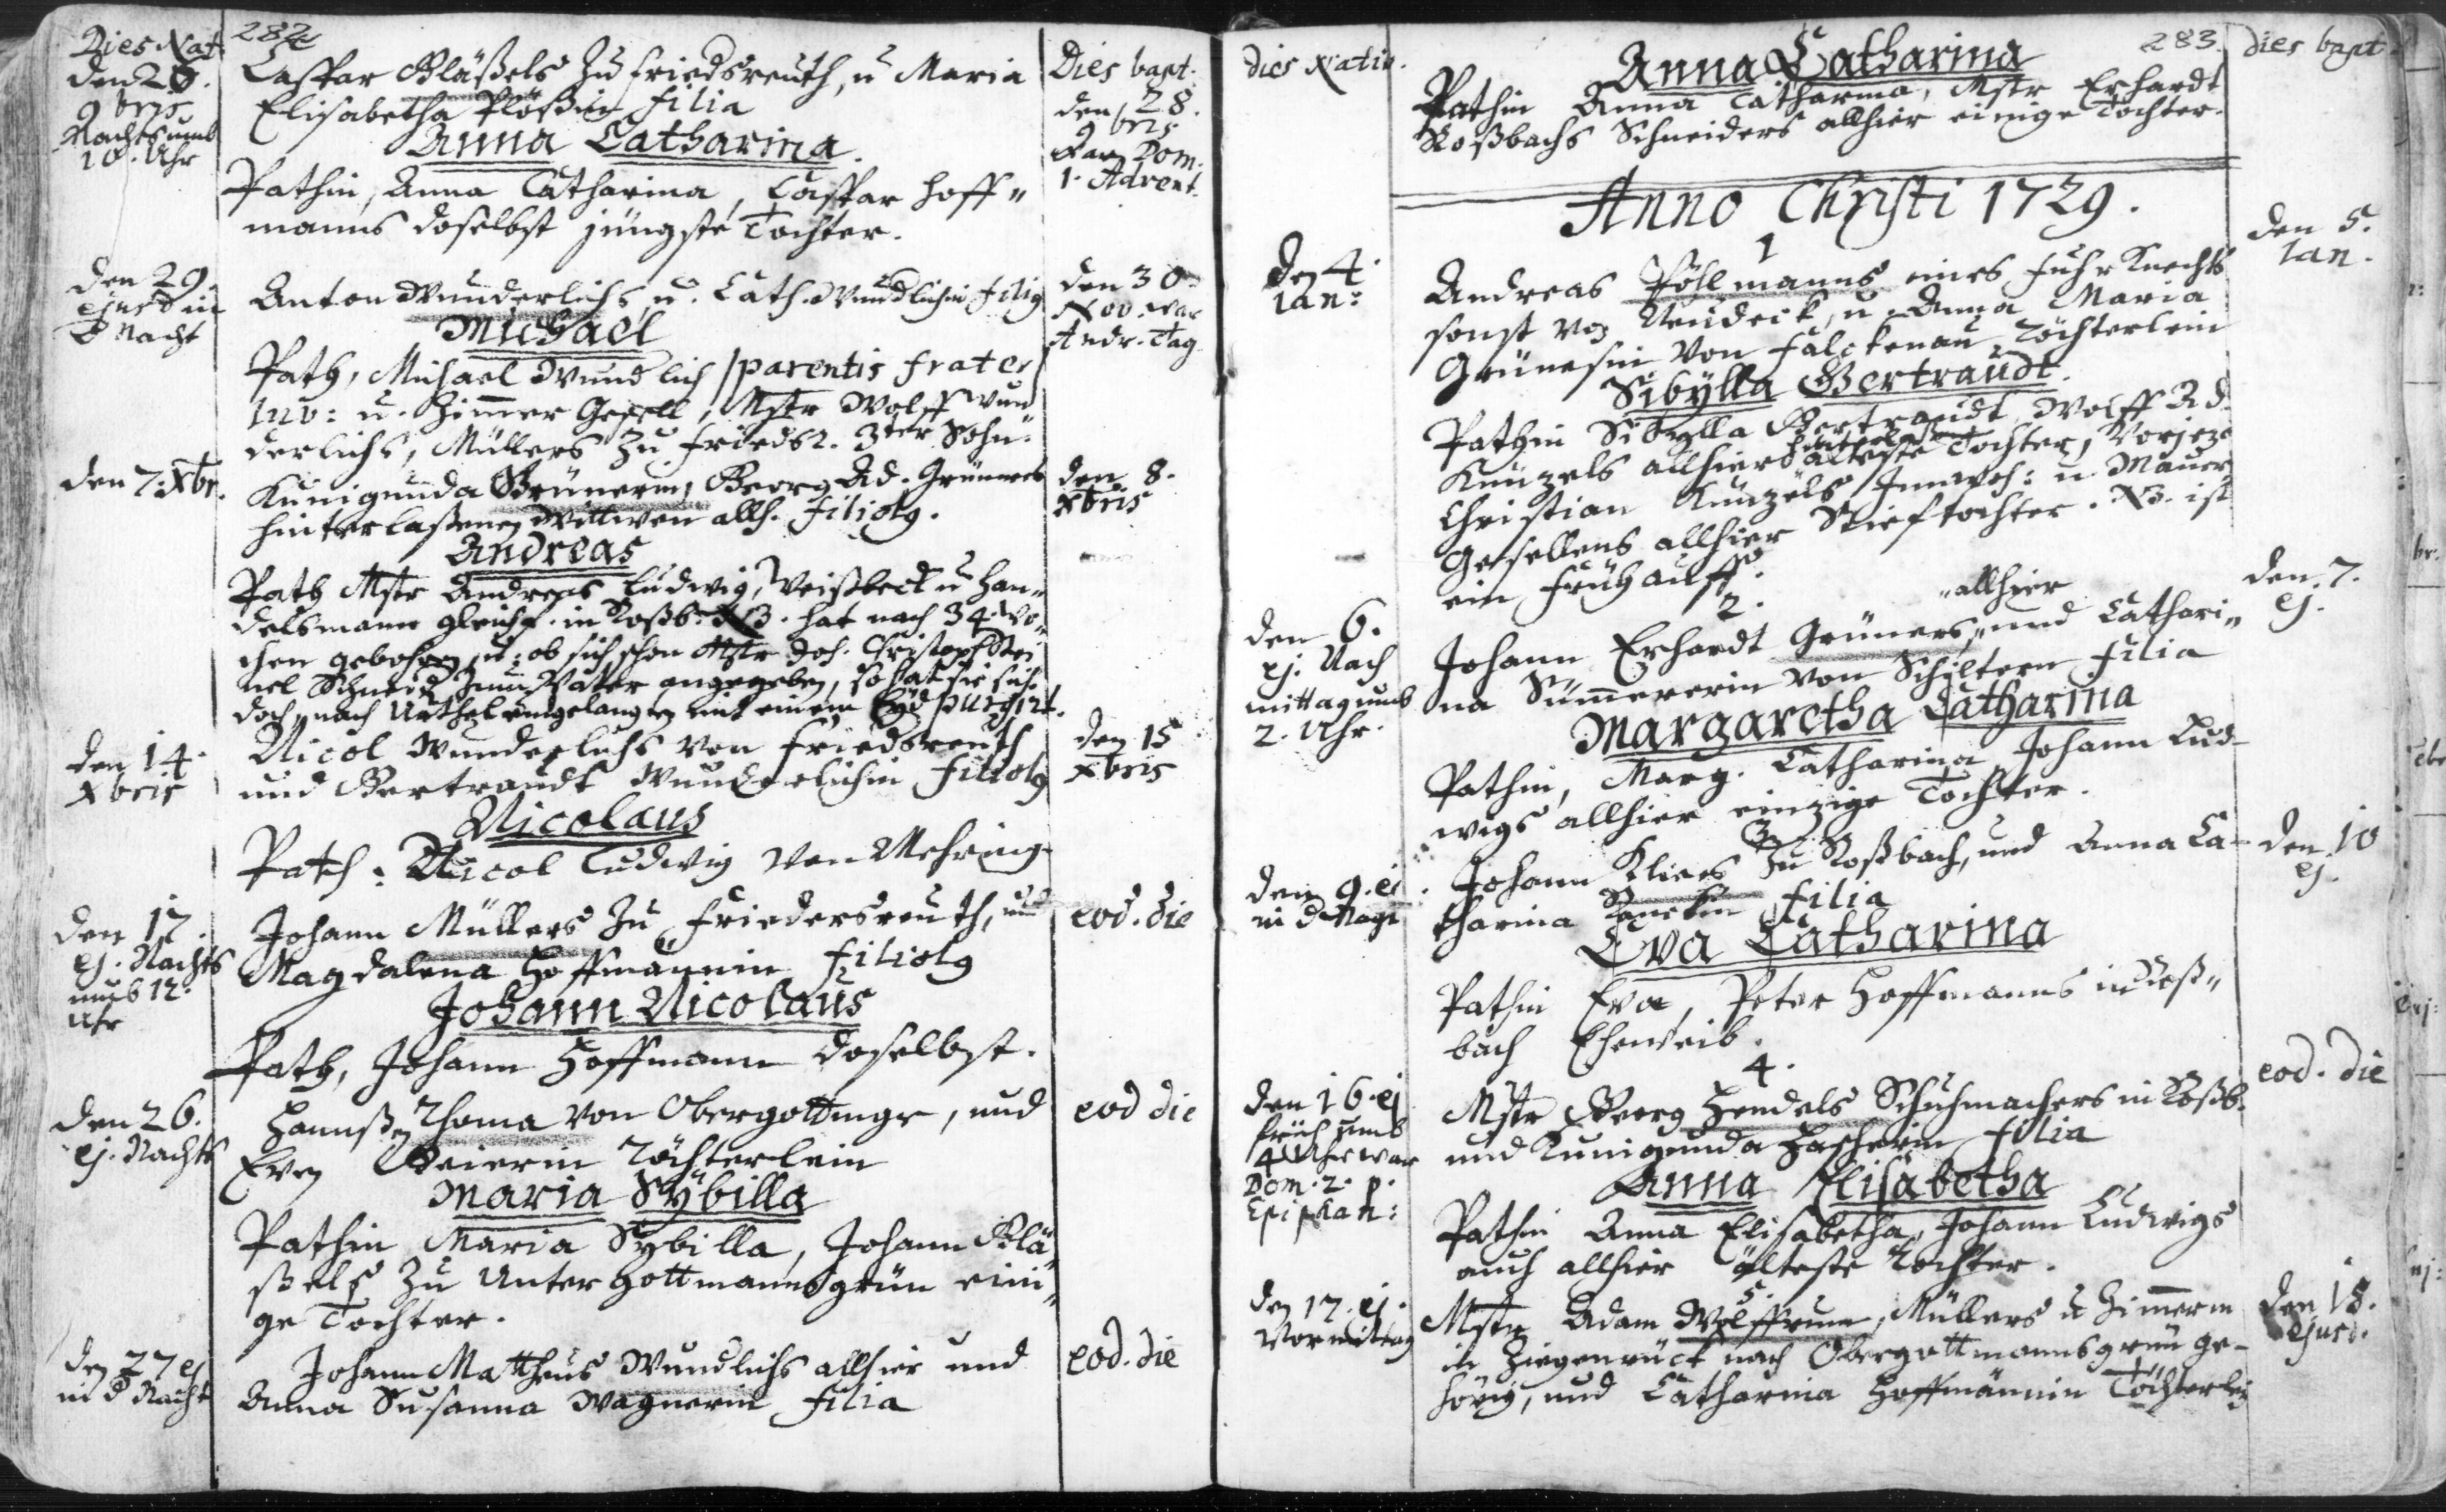 282
Dies Nat.
den 26.
9bris
Nachts umb
10. Uhr
Caspar Bläßels zu Friedsreuth, u Maria
Elisabetha Plößin filia
Anna Catharina.
Pathin, Anna Catharina, Caspar Hoff„
manns daselbst jüngste Tochter.
Dies bapt.
den 28.
9bris
war Dom.
1. Advent.
den 29.
ejusd in
d Nacht
Anton Wunderlichs, u. Cath. Wundlichin filiq
Michael
Path, Michael Wundlich /parentis frater/
Inv: u. Zimer Gesell, Mstr Wolff Wun
derlichs, Müllers zu Friedsr. 3ter Sohn.
den 30.
Nov. war
Andr. Tag
den 7. Xbr.
Kunigunda Grünerin, Georg Ad. Grüners
hinterlaßenen Wittwen allh. filiolq.
Andreas
Path Mstr Andreas Ludwig, Weißbeck u Han„
delsmann gleichf. in Roßb. NB. hat nach 34 Wo„
chen gebohren, u: ob sich schon Mstr Joh. Christoph
nel Schneid. zum Vater angegeben, so hat sie sich
doch nach Urthel eingelangten mit einem Eyd purgirt.
den 8.
Xbris
den 14.
Xbris
Nicol Wunderlichs von Friedsreuth
und Gertraudt Wunderlichin filiolq
Nicolaus
Path: Nicol Ludwig von Mehring
den 15
Xbris
den 17.
ej. Nachts
umb 12.
Uhr
Johann Müllers zu Friedersreuth, und
Magdalena Hoffmännin filiolq
Johann Nicolaus
Path, Johann Hoffmann daselbst.
eod. die
den 26.
ej. Nachts
Hannßen Thoma von Obergottmgr, und
Even Geierin Töchterlein
Maria Sybilla
Pathin Maria Sybilla, Johann Blä„
ßels zu Unter Gottmannsgrün eini„
ge Tochter.
eod die
den 27 ej
in d Nacht
Johann Mattheus Wundlichs allhier und
Anna Susanna Wagnerin filia
eod. die
283.
dies Nativ.
dies bapt.
Anna Catharina
Pathin Anna Catharina, Mstr Erhardt
Roßbachs Schneiders allhier einige Tochter.
Anno Christi 1729.
1
den 4.
Ian:
Andreas Pöllmanns eines Fuhr Knechts
sonst von Neudeck, u. Anna Maria
Grünesin von Falckenau Töchterlein
Sibylla Gertraudt.
Pathin Sibylla Gertraudt, Wolff Ad.
Künzels allhier hinterlaßene älteste Tochter, vorjezo
Christian Künzels Innwoh: u Maurer
Gesellens allhier Stieftochter. NB. ist
ein
den 5.
Ian.
2.
den 6.
ej. Nach
mittag umb
2. Uhr.
„allhier
Johann Erhardt Grüners, „und Cathari„
na Sumererin von Schiltern filia
Margaretha Catharina
Pathin, Marg. Catharina, Johann Lud-
wigs allhier einzige Tochter.
den 7.
ej.
3.
den 9. ej.
in d Nacht
Johann Kliers zu Roßbach, und Anna Ca-
tharina filia
Eva Catharina
Pathin Eva, Peter Hoffmanns in Roß„
bach Eheweib.
den 10
ej.
4.
den 16. ej
früh umb
4 Uhr war
Dom. 2. p.
Epiphan:
Mstr Georg Hendels Schuhmachers in Roßb.
und Kunigunda filia
Anna Elisabetha
Pathin Anna Elisabetha, Johann Ludwigs
auch allhier älteste Tochter.
eod. die
5.
den 17. ej.
Vormittag
Mstr Adam Wolffrum, Müllers u Zimerm
in Ziegenruck nach Obergottmannsgrün ge-
hörig, und Catharina Hoffmännin Töchterlein
den 18.
ejusd.